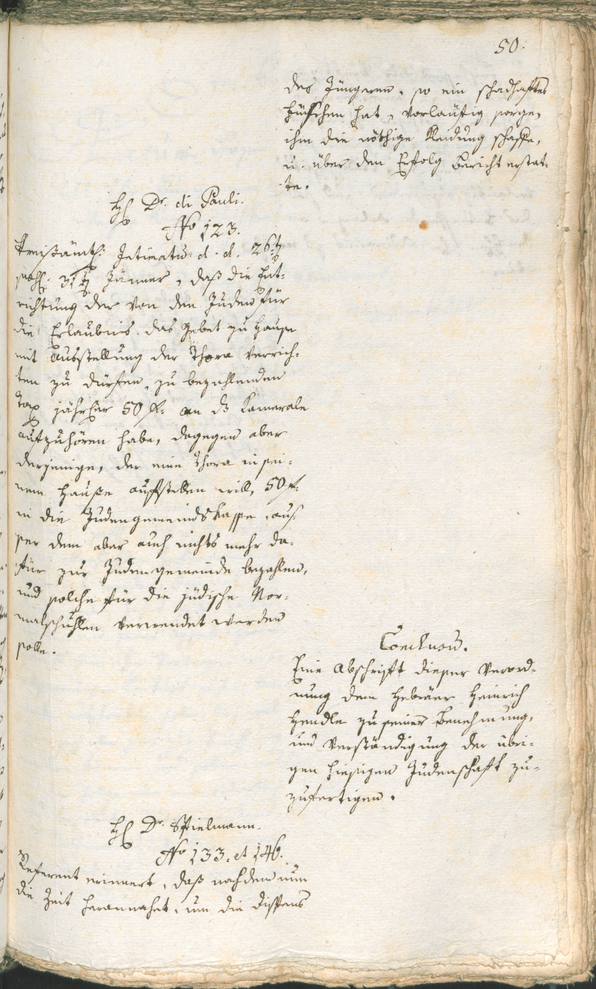 50.
des Jüngeren, so ein schadhaftes
Füsschen hat, vorläufig sorge,
ihm die nöthige Kleidung schaffe,
u. über den Erfolg Bericht erstat-
te.
H. Dr. di Pauli.
No 123.
Kreisämtl. Intimatum d. d. 26t
Jänner, daß die Ent-
richtung der von den Juden für
die Erlaubnis das Gebet zu Hause
mit Ausstellung der Thora verrich-
ten zu dürfen, zu bezahlenden
Tax jährler 50 f. an ds Kamerale
aufzuhören habe, dagegen aber
derjenige, der eine Thora in sei-
nem Hause aufstellen will, 50 f.
in die Judengemeindskasse, aus-
ser dem aber auch nichts mehr da-
für zur Judengemeinde bezahlen,
und solche für die jüdische Nor-
malschuhlen verwendet werden
solle.
Conclusum.
Eine Abschrift dieser Verord-
nung dem Hebräer Heinrich
Hendle zu seiner Benehmung,
und Verständigung der übri-
gen hiesigen Judenschaft zu-
zufertigen.
H. Dr. Spielmann.
No 133. et 146.
Referent erinnert, daß nachdem nun
die Zeit herannahet, um die